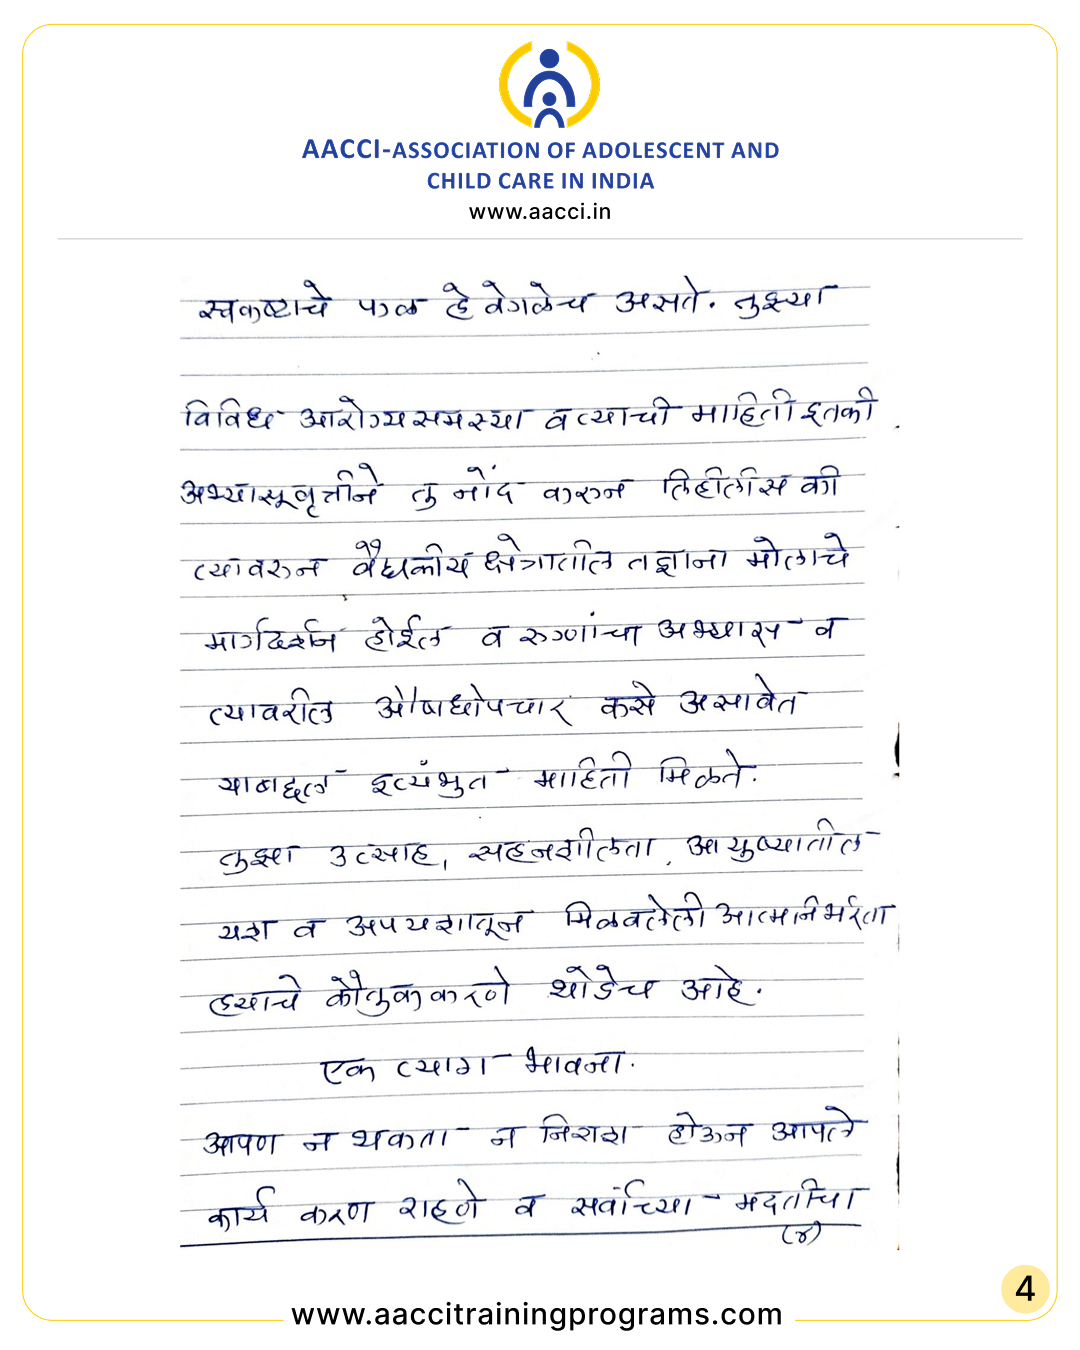 AACCI-ASSOCIATION OF ADOLESCENT AND
CHILD CARE IN INDIA
www.aacci.in
स्वकष्टाचे फळ हे वेगळेच असते. तुझ्या
विविध आरोग्य समस्या व त्याची माहिती इतकी
अभ्यासूवृत्तीने तु नोंद करुन लिहीलीस की
त्यावरुन वैद्यकीय क्षेत्रातील तज्ञाना मोलाचे
मार्गदर्शन होईल व रुग्णांचा अभ्यास व
त्यावरील औषधोपचार कसे असावेत
याबद्दल इत्यंभुत माहिती मिळते.
तुझा उत्साह, सहनशीलता, आयुष्यातील
यश व अपयशातून मिळवलेली आत्मनिर्भरता
ह्याचे कौतुक करणे थोडेच आहे.
एक त्याग भावना.
आपण न थकता न निराश होऊन आपले
कार्य करण राहणे व सर्वांच्या मदतीचा
(४)
4
www.aaccitrainingprograms.com